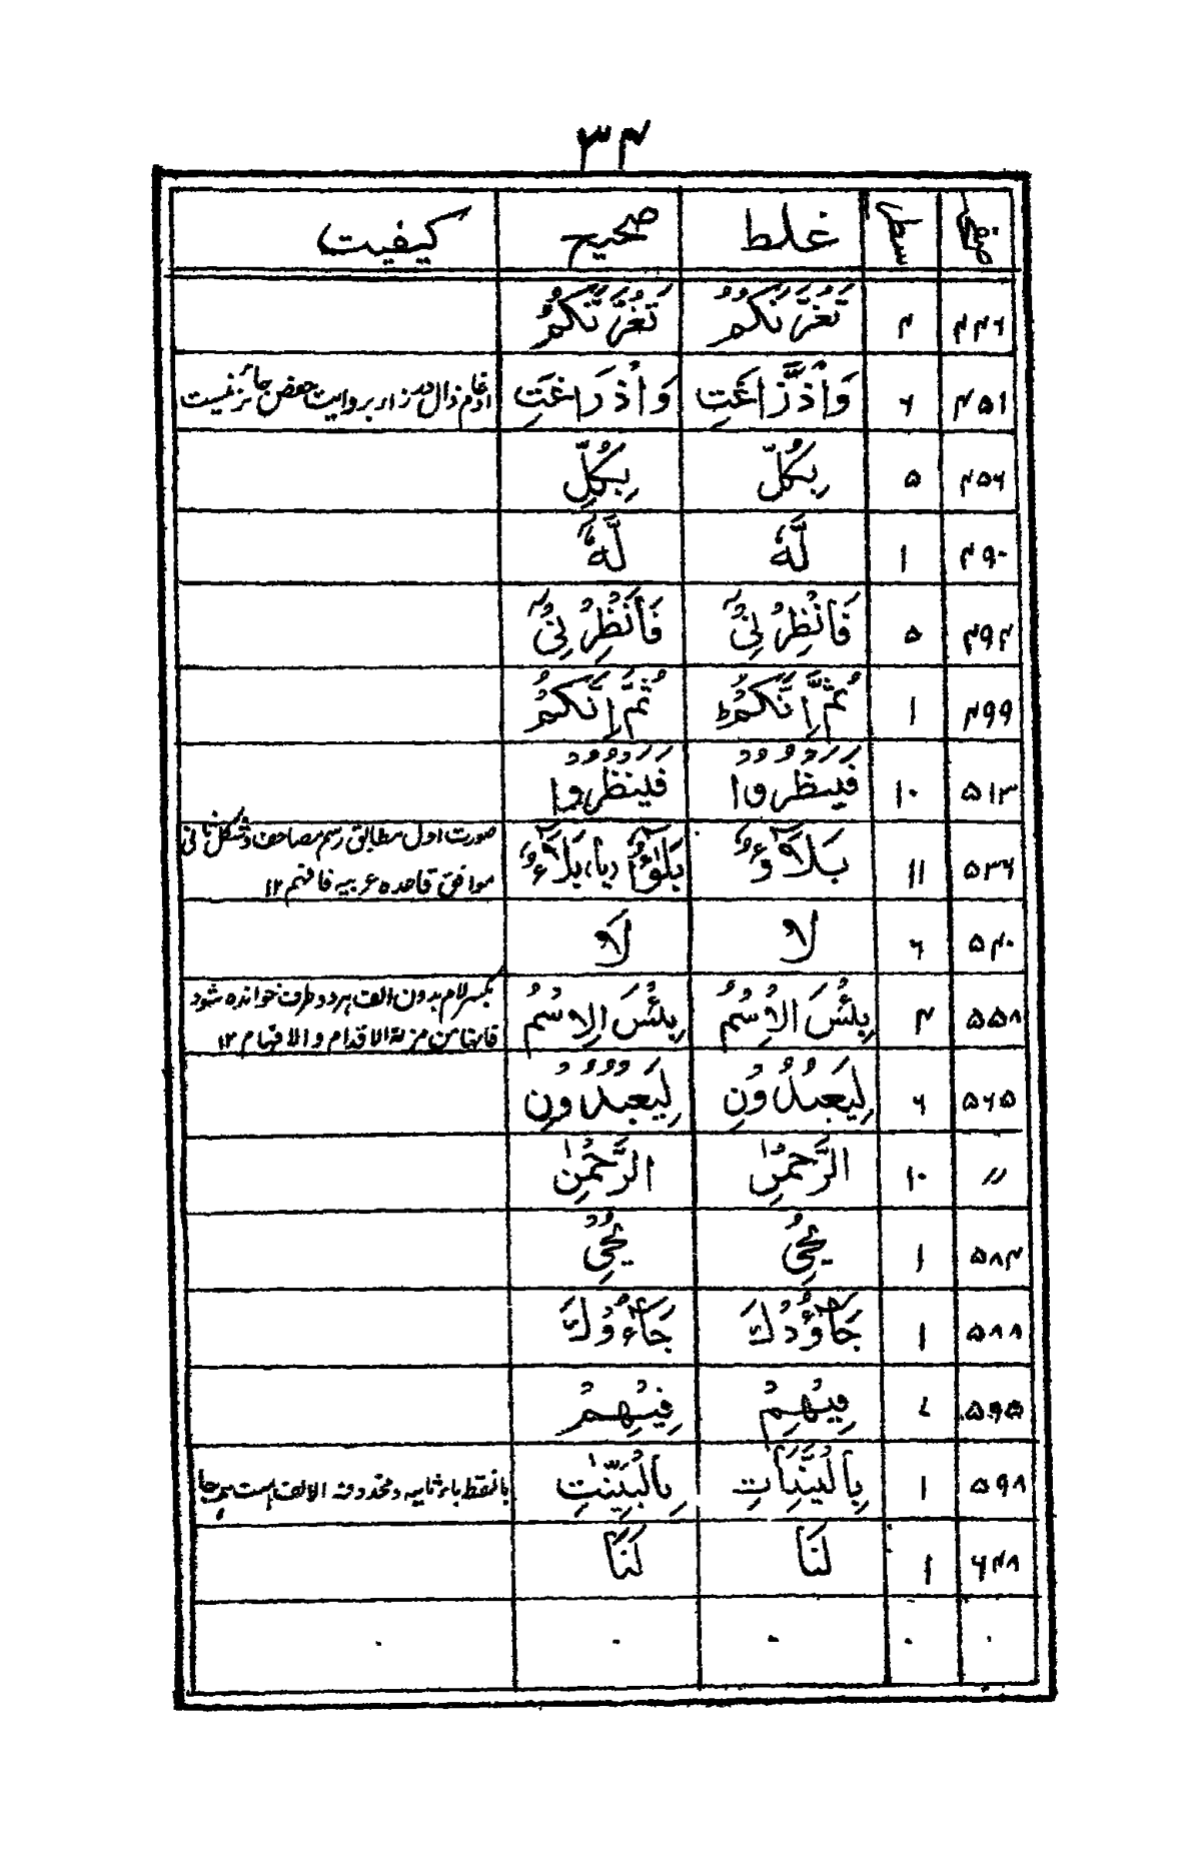 ۳۴
صفحہ سطر غلط صحیح کیفیت
۴۴۶ ۴ تَغُرَّنَّكُمُ تَغُرَّنَّكُمْ
۴۵۱ ۶ وَاُذزَّاغَتِ وَاُذزَاغَتِ ادغام ذال در زاء بروایت حفص جائز نیست
۴۵۶ ۵ بِكُلّ بِكُلِّ
۴۹۰ ۱ لَّهٗ لَّهٗ
۴۹۴ ۵ فَانْظِرْنِيْ فَاَنْظِرْنِيْ
۴۹۹ ۱ ثُمَّ اِنَّكُمْ ثُمَّ اِنَّكُمْ
۵۱۳ ۱۰ فَيَنْظُرُوا فَيَنْظُرُوْا
۵۳۶ ۱۱ بَلَآوءٌ بَلٰٓؤٌا (یا) بَلَآءٌ صورت اول مطابق رسم مصاحف و شکل ثانی
موافق قاعدہ عربیہ فافہم ۱۲
۵۴۰ ۶ لا لَا
۵۵۸ ۴ بِئْسَ الْاِسْمُ بِئْسَ الِاسْمُ بکسر لام بدون الف ہر دو طرف خواندہ شود
فانہا من مزلة الاقدام و الافہام ۱۲
۵۶۵ ۶ لِيَعْبُدُونِ لِيَعْبُدُوْنِ
〃 ۱۰ الرَّحْمٰنِ الرَّحْمٰنِ
۵۸۴ ۱ يُحْيِ يُحْيِ
۵۸۸ ۱ جَآؤُدكَ جَآءُوْكَ
۵۹۵ ۷ فِيْهِمْ فِيْهِمْ
۵۹۸ ۱ بِالْبَيِّنَاتِ بِالْبَيِّنٰتِ بانقط باء ثانیہ و محذوفة الالف است ہر جا
۶۴۸ ۱ لَنَا لَنَا